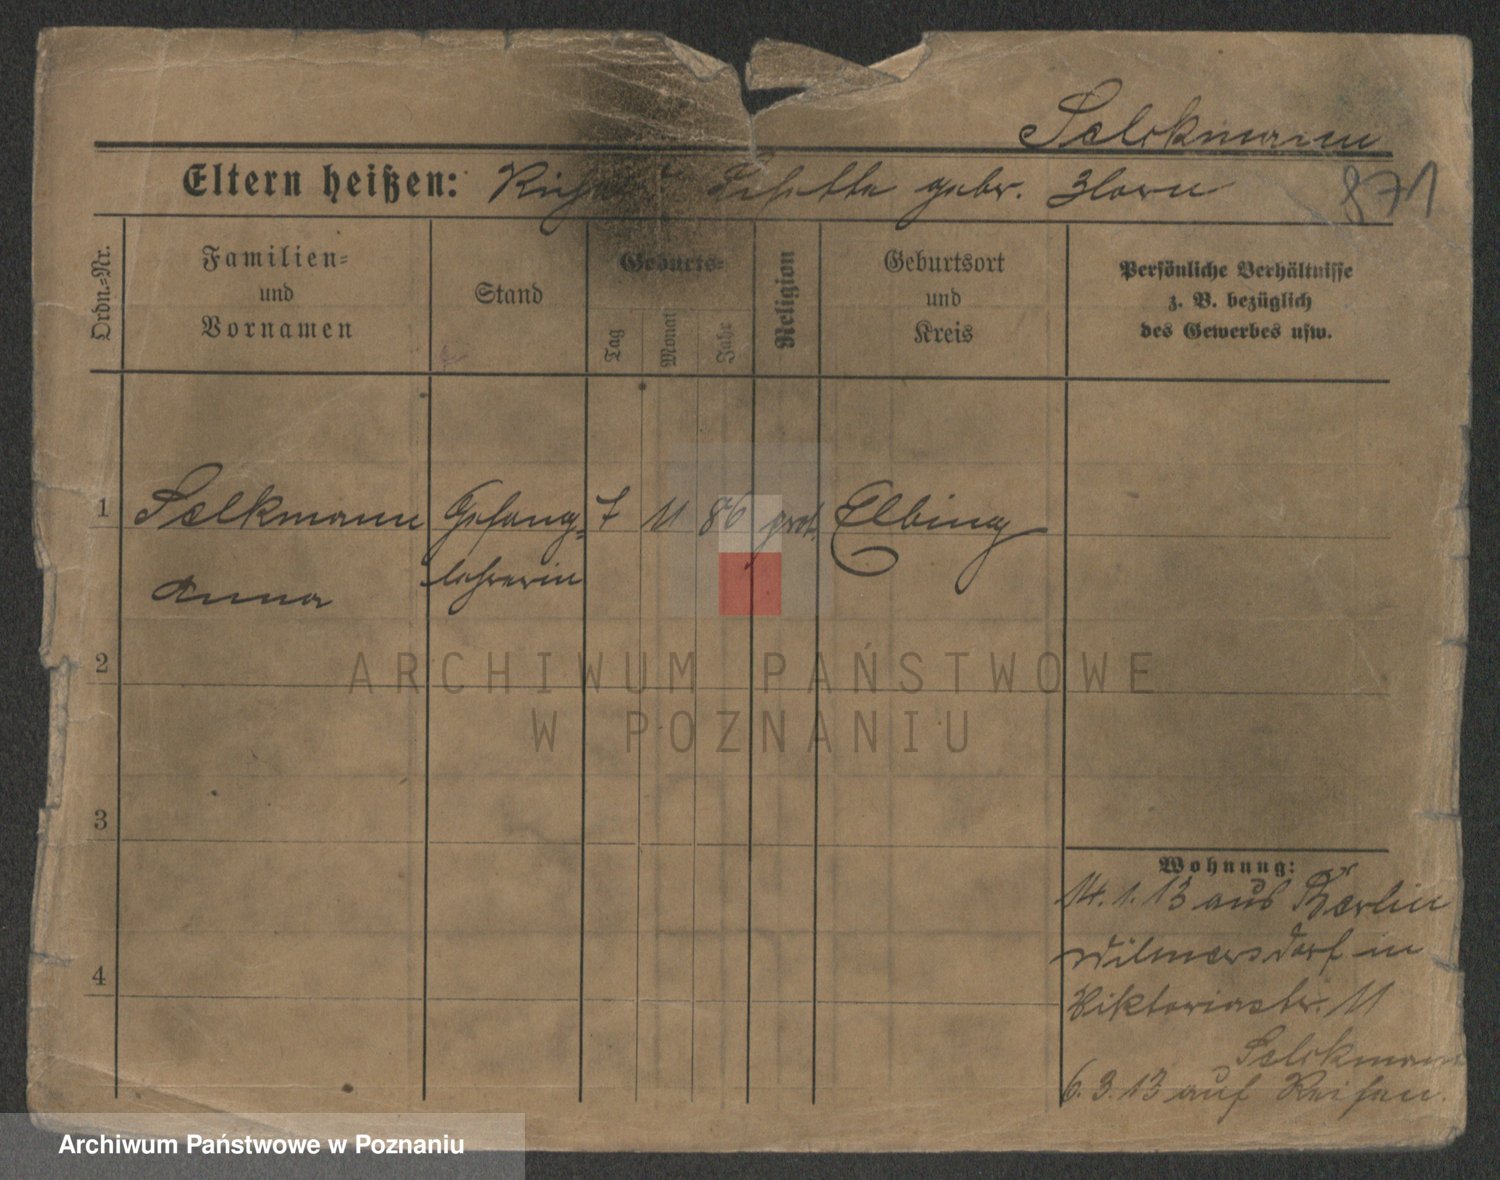 Selckmann
Eltern heißen: Lisette gebr. Horn 871
Ordn.-Nr.
Familien-
und
Vornamen
Stand
Geburts-
Tag
Monat
Jahr
Religion
Geburtsort
und
Kreis
Persönliche Verhältnisse
z. B. bezüglich
des Gewerbes usw.
1 Selkmann Gesang= 7 11 86 prot. Elbing
Anna lehrerin
2
3
4
Wohnung:
14. 1. 13 aus Berlin
Wilmersdorf in
Viktoriastr. 11
Selckmann
6. 3. 13 auf Reisen.
ARCHIWUM PAŃSTWOWE
W POZNANIU
Archiwum Państwowe w Poznaniu